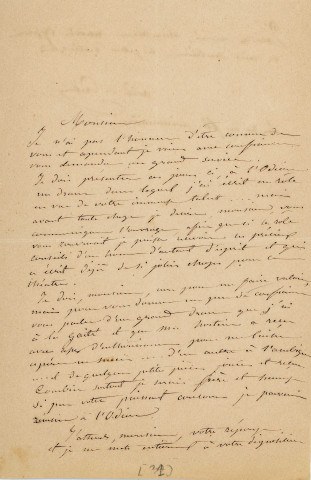 Monsieur
Je n'ai pas l'honneur d'être connue de
vous et cependant je viens avec confiance
vous demander un grand service.
Je dois présenter ces jours ci à l'Odéon
un drame dans lequel j'ai écrit un rôle
en vue de votre immense talent ... mais
avant toute chose je désire, monsieur, vous
communiquer l'ouvrage afin que si ce rôle
vous convenait je puisse recevoir les précieux
conseils d'un homme d'autant d'esprit et qui
a écrit déjà de si jolies choses pour le
théâtre.
Je dois, monsieur, non pour me faire valoir,
mais pour vous donner un peu de confiance
vous parler d'un grand drame que j'ai
à la Gaîté et que Mr Hostein a reçu
avec assez d'enthousiasme pour me faire
espérer un succès ... d'un autre à l'ambigu
... et de quelques petites pièces jouées et reçues
Combien surtout je serais fière et heureuse
si par votre puissant concours je pouvais
réussir à l'Odéon
J'attends, monsieur, votre réponse
et je me mets entièrement à votre disposition
[31]